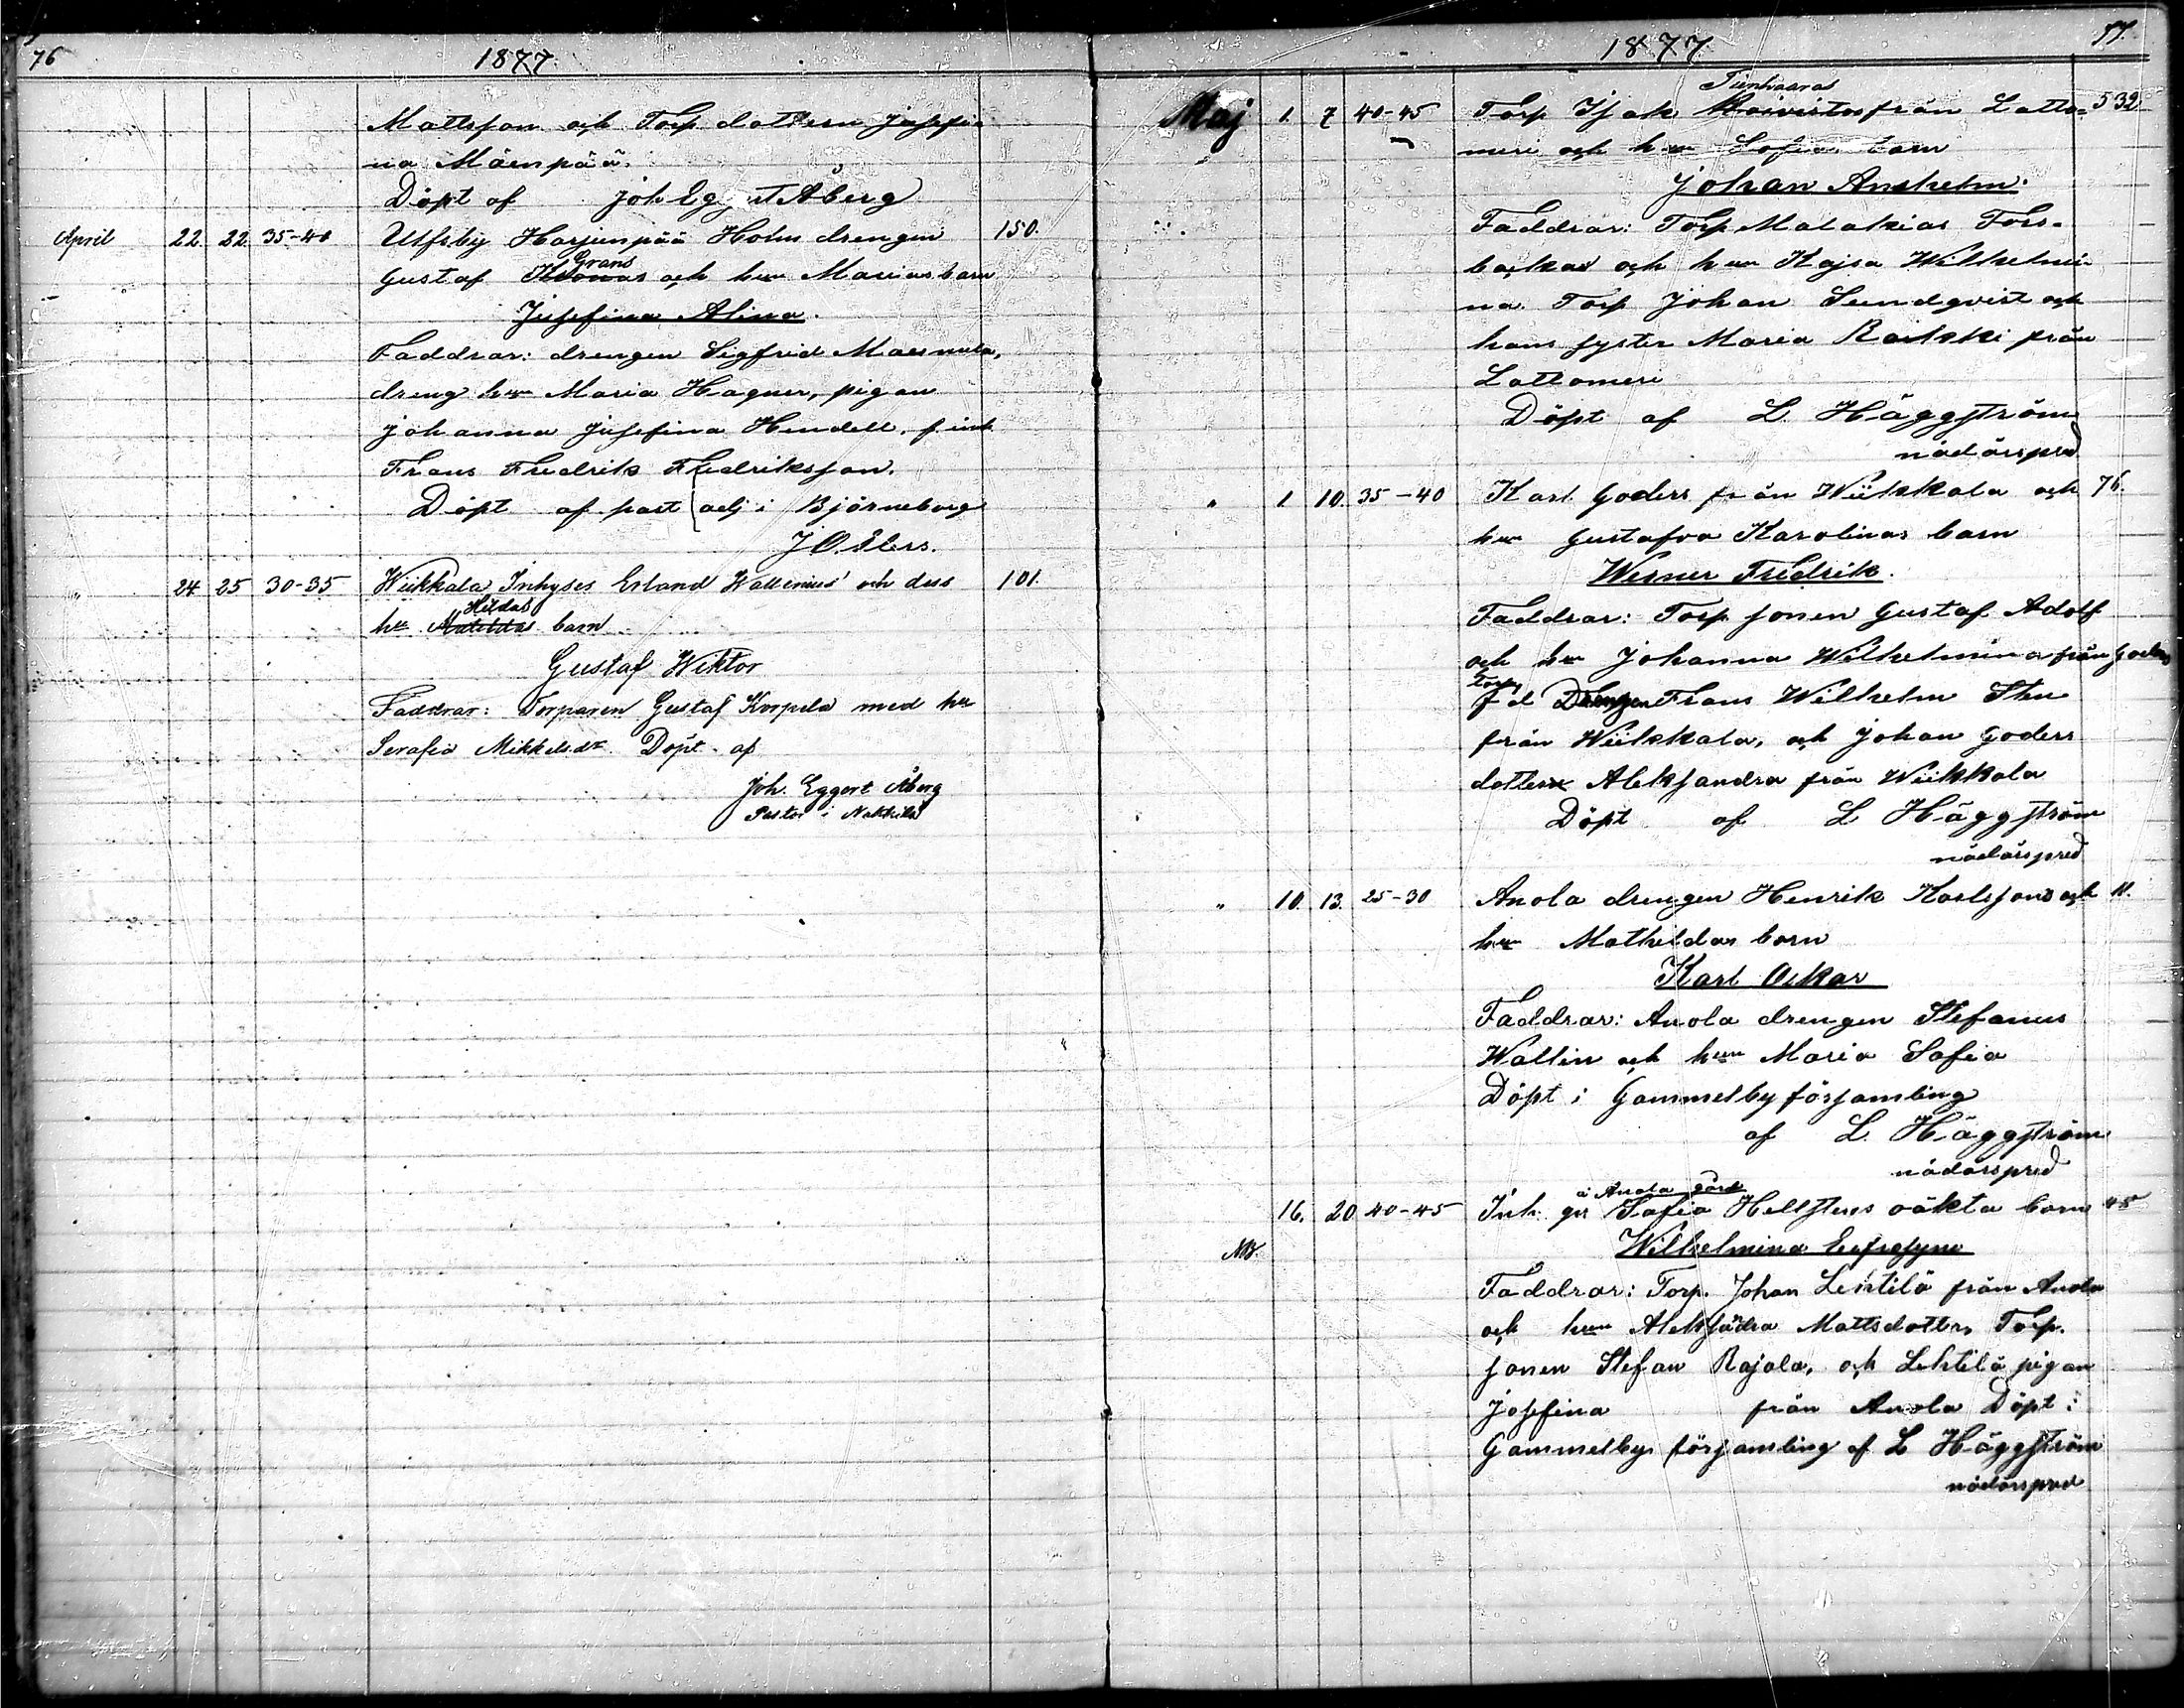 76
1877
Mattsson och Torp dottern Josefi
na Mäenpää.
Döpt af Joh Eg Åberg
April 22. 22. 35-40 Ulfsby Harjunpää Holm drengen 150.
Grans
Gustaf och hu Marias barn
Josefina Alina.
Faddrar: drengen Sigfrid
dreng hu Maria Hagner, pigan
Johanna Josefina Hendell,
Frans Fredrik Fredriksson.
Döpt af past adj i Björneborg
J O
" 24 25 30-35 Wiikkala Inhyses Erland Wallenius' och dess 101.
Hildas
hu Matildas barn
Gustaf Wiktor
Faddrar: Torparen Gustaf Korpela med hu
Serafia Mikkelsdr. Döpt af
Joh. Eggert Åberg
Pastor i Nakkila
1877.
77.
Maj 1. 7 40-45 Torp Isak Koivistos från Latto- 532
meri och hu Sofias barn
Johan Anshelm.
Faddrar: Torp Malakias Fors-
backa och hu Kajsa Wilhelmi
na Torp Johan Sundqvist och
hans syster Maria från
Lattomeri
Döpt af L. Häggström
nådårspred
" 1 10. 35-40 Karl Goders från Wiikkala och 76.
hu Gustafva Karolinas barn
Werner Fredrik.
Faddrar: Torp sonen Gustaf Adolf
och hu Johanna Wilhelmina från
Torp
Drengen Frans Wilhelm
från Wiikkala, och Johan Goders
dotter Aleksandra från Wiikkala
Döpt af L Häggström
nådårspred
" 10. 13. 25-30 Anola drengen Henrik Karlssons och 11.
hu Mathildas barn
Karl Oskar
Faddrar: Anola drengen Stefanus
Wallin och hu Maria Sofia
Döpt i Gammelby församling
af L. Häggström
nådårspred
å Anola gård
16. 20 40-45 Inh. Sofia Hellstens oäkta barn 45
NB. Wilhelmina Eufrosyne
Faddrar: Torp. Johan Lehtilä från Anola
och hu Aleksandra Mattsdotter, Torp.
sonen Stefan Rajala, och Lehtilä pigan
Josefina från Anola Döpt i
Gammelby församling af L Häggström
nådårspred